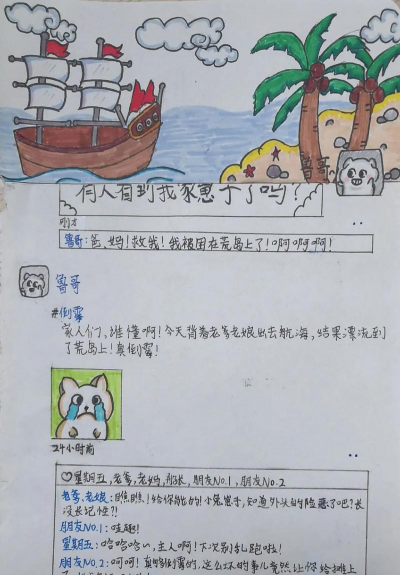 鲁哥
有人看到我家崽子了吗？
刚才
鲁哥：爸，妈！救我！我被困在荒岛上了！啊啊啊！
鲁哥
#倒霉
家人们，谁懂啊！今天背着老爹老娘出去航海，结果漂流到
了荒岛上！真倒霉！
24小时前
♡星期五，老爹，老妈，船长，朋友No.1，朋友No.2
老爹，老娘：瞧瞧！给你能的！小兔崽子，知道外头的险恶了吧？长
没长记性？！
朋友No.1：哇趣！
星期五：哈哈哈，主人啊！下次别乱跑啦！
朋友No.2：呵呵！真够倒霉的，这么坏的事儿竟然让你给摊上